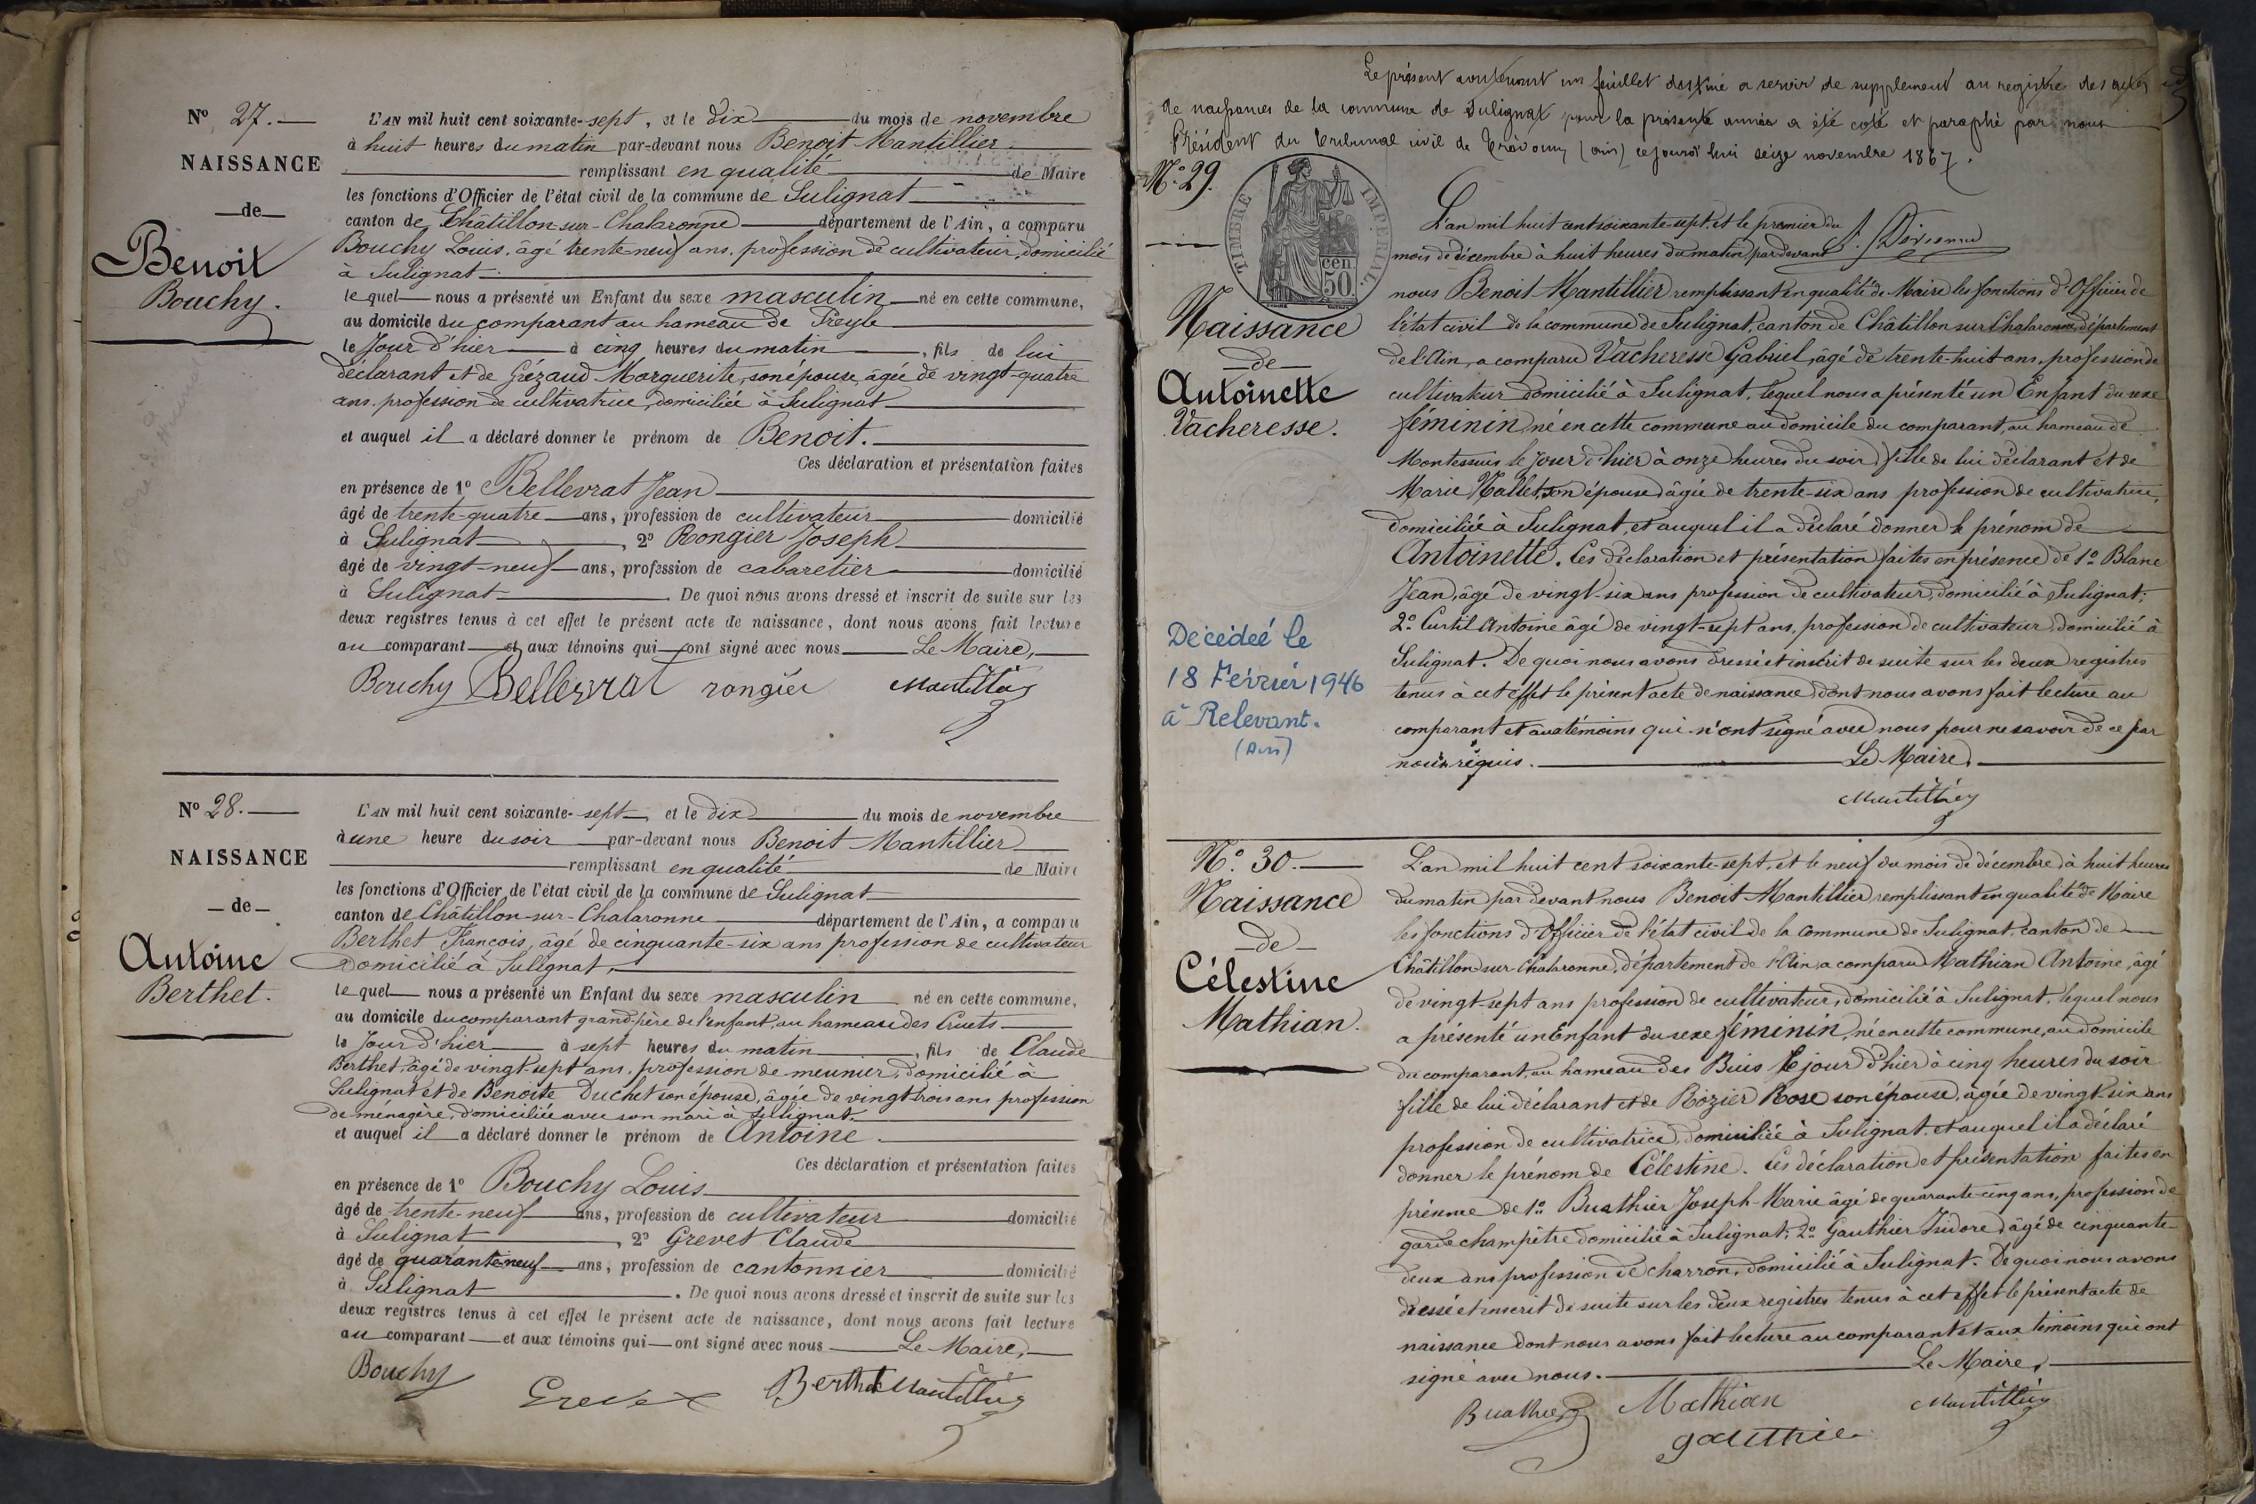 Nº 27.
NAISSANCE
de
Benoit
Bouchy.
L'AN mil huit cent soixante-sept, et le dix du mois de novembre
à huit heures du matin par-devant nous Benoit Mantillier
remplissant en qualité de Maire
les fonctions d'Officier de l'état civil de la commune de Sulignat
canton de Châtillon-sur-Chalaronne département de l'Ain, a comparu
Bouchy Louis, âgé trente-neuf ans, profession de cultivateur, domicilié
à Sulignat
lequel nous a présenté un Enfant du sexe masculin né en cette commune,
au domicile du comparant au hameau de Freyle
le Jour d'hier à cinq heures du matin, fils de lui
déclarant et de Grézaud Marguerite, son épouse, âgée de vingt-quatre
ans, profession de cultivatrice, domiciliée à Sulignat
et auquel il a déclaré donner le prénom de Benoit.
Ces déclaration et présentation faites
en présence de 1º Bellevrat Jean
âgé de trente-quatre ans, profession de cultivateur domicilié
à Sulignat, 2º Rongier Joseph
âgé de vingt-neuf ans, profession de cabaretier domicilié
à Sulignat. De quoi nous avons dressé et inscrit de suite sur les
deux registres tenus à cet effet le présent acte de naissance, dont nous avons fait lecture
au comparant et aux témoins qui ont signé avec nous Le Maire,
Bouchy Bellevrat rongier Mantillier
Nº 28.
NAISSANCE
de
Antoine
Berthet.
L'AN mil huit cent soixante-sept, et le dix du mois de novembre
à une heure du soir par-devant nous Benoit Mantillier
remplissant en qualité de Maire
les fonctions d'Officier de l'état civil de la commune de Sulignat
canton de Châtillon-sur-Chalaronne département de l'Ain, a comparu
Berthet François, âgé de cinquante-six ans profession de cultivateur
domicilié à Sulignat,
lequel nous a présenté un Enfant du sexe masculin né en cette commune,
au domicile du comparant grand-père de l'enfant, au hameau des Cruets
le Jour d'hier à sept heures du matin, fils de Claude
Berthet, âgé de vingt-sept ans, profession de meunier, domicilié à
Sulignat et de Benoite Duchet son épouse, âgée de vingt trois ans profession
de ménagère, domiciliée avec son mari à Sulignat
et auquel il a déclaré donner le prénom de Antoine.
Ces déclaration et présentation faites
en présence de 1º Bouchy Louis
âgé de trente-neuf ans, profession de cultivateur domicilié
à Sulignat, 2º Grevet Claude
âgé de quarante-neuf ans, profession de cantonnier domicilié
à Sulignat. De quoi nous avons dressé et inscrit de suite sur les
deux registres tenus à cet effet le présent acte de naissance, dont nous avons fait lecture
au comparant et aux témoins qui ont signé avec nous Le Maire,
Bouchy Grevet Berthet Mantillier
Le présent contenant un feuillet destiné a servir de supplement au registre des actes
de naissances de la commune de Sulignat pour la présente année a été coté et paraphé par nous
Président du tribunal civil de Trévoux (ain) ce jourd'hui seize novembre 1867.
Nº 29.
TIMBRE IMPÉRIAL
50 cen
Naissance
de
Antoinette
Vacheresse.
Décédeé le
18 Février 1946
à Relevant.
(Ain)
L'an mil huit cent soixante-sept, et le premier du
mois de décembre à huit heures du matin, par devant
nous Benoit Mantillier remplissant en qualité de Maire les fonctions d'Officier de
l'état civil de la commune de Sulignat, canton de Châtillon sur Chalaronne, département
de l'Ain, a comparu Vacheresse Gabriel, âgé de trente-huit ans, profession de
cultivateur domicilié à Sulignat, lequel nous a présenté un Enfant du sexe
féminin, né en cette commune au domicile du comparant, au hameau de
Montessuis le jour d'hier à onze heures du soir, fille de lui déclarant et de
Marie Mallet, son épouse âgée de trente-six ans profession de cultivatrice,
domiciliée à Sulignat, et auquel il a déclaré donner le prénom de
Antoinette. Ces déclaration et présentation faites en présence de 1º Blanc
Jean, âgé de vingt-six ans profession de cultivateur, domicilié à Sulignat;
2º Curtil Antoine âgé de vingt-sept ans, profession de cultivateur, domicilié à
Sulignat. De quoi nous avons dressé et inscrit de suite sur les deux registres
tenus à cet effet le présent acte de naissance, dont nous avons fait lecture au
comparant et aux témoins qui n'ont signé avec nous pour ne savoir de ce par
nous requis. Le Maire,
Mantillier
Nº 30.
Naissance
de
Célestine
Mathian.
L'an mil huit cent soixante-sept, et le neuf du mois de décembre à huit heures
du matin par devant nous Benoit Mantillier remplissant en qualité de Maire
les fonctions d'Officier de l'état civil de la commune de Sulignat, canton de
Châtillon sur Chalaronne, département de l'Ain, a comparu Mathian Antoine, âgé
de vingt-sept ans profession de cultivateur, domicilié à Sulignat, lequel nous
a présenté un Enfant du sexe féminin, né en cette commune, au domicile
du comparant, au hameau des Buis le jour d'hier à cinq heures du soir
fille de lui déclarant et de Rozier Rose son épouse, âgée de vingt-six ans
profession de cultivatrice, domiciliée à Sulignat. et auquel il a déclaré
donner le prénom de Célestine. Ces déclaration et présentation faites en
présence de 1º Buathier Joseph-Marie âgé de quarante-cinq ans, profession de
garde champêtre domicilié à Sulignat; 2º Gauthier Isidore âgé de cinquante-
deux ans profession de charron, domicilié à Sulignat. De quoi nous avons
dressé et inscrit de suite sur les deux registres tenus à cet effet le présent acte de
naissance dont nous avons fait lecture au comparant et aux témoins qui ont
signé avec nous. Le Maire,
Buathier Mathian Mantillier
gauthier